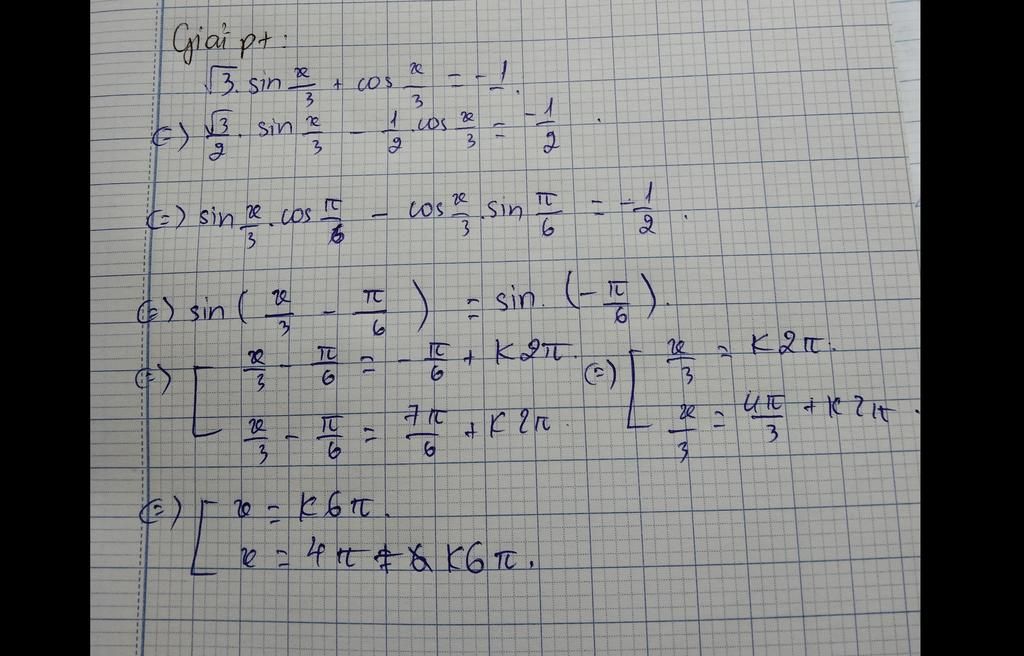 Giải pt:
√3. sin x/3 + cos x/3 = -1.
(=) √3/2 . sin x/3 - 1/2 . cos x/3 = -1/2 .
(=) sin x/3 . cos π/6 - cos x/3 . sin π/6 = -1/2 .
(=) sin ( x/3 - π/6 ) = sin. (- π/6 ).
(=) [ x/3 - π/6 = - π/6 + K2π. (=) [ x/3 = K2π.
x/3 - π/6 = 7π/6 + K2π. x/3 = 4π/3 + K2π.
(=) [ x = K6π.
x = 4π + K6π.